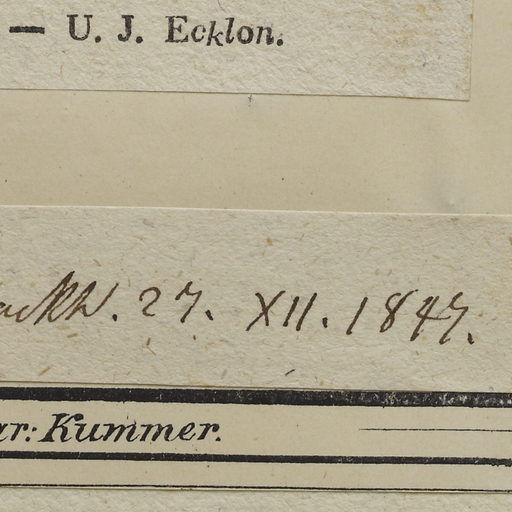 — U. J. Ecklon.
27. XII. 1847.
ar: Kummer.